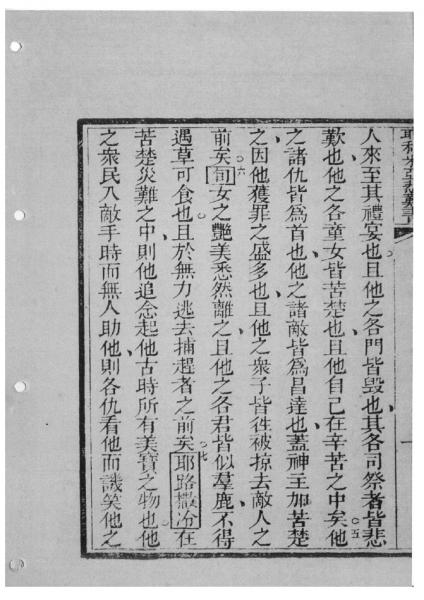 人來至其禮宴也且他之各門皆毀也其各司祭者皆悲
歎也他之各童女皆苦楚也且他自己在辛苦之中矣他五
之諸仇皆為首也他之諸敵皆為昌達也蓋神主加苦楚
之因他獲罪之盛多也且他之衆子皆徃被掠去敵人之
前矣六旬女之艷美悉然離之且他之各君皆似羣鹿不得
遇草可食也且於無力逃去捕趕者之前矣七耶路撒冷在
苦楚災難之中則他追念起他古時所有美寶之物也他
之衆民入敵手時而無人助他則各仇看他而譏笑他之